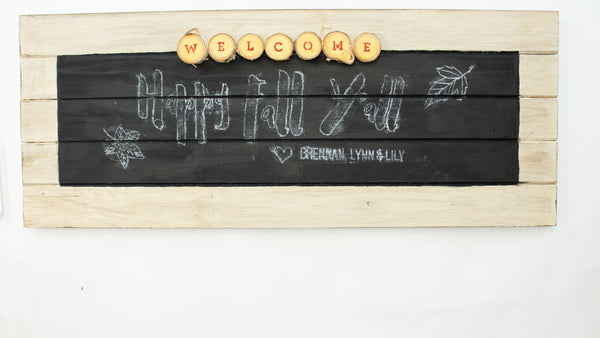 WELCOME
Happy Fall Yall
BRENNAN, LYNN & LILY